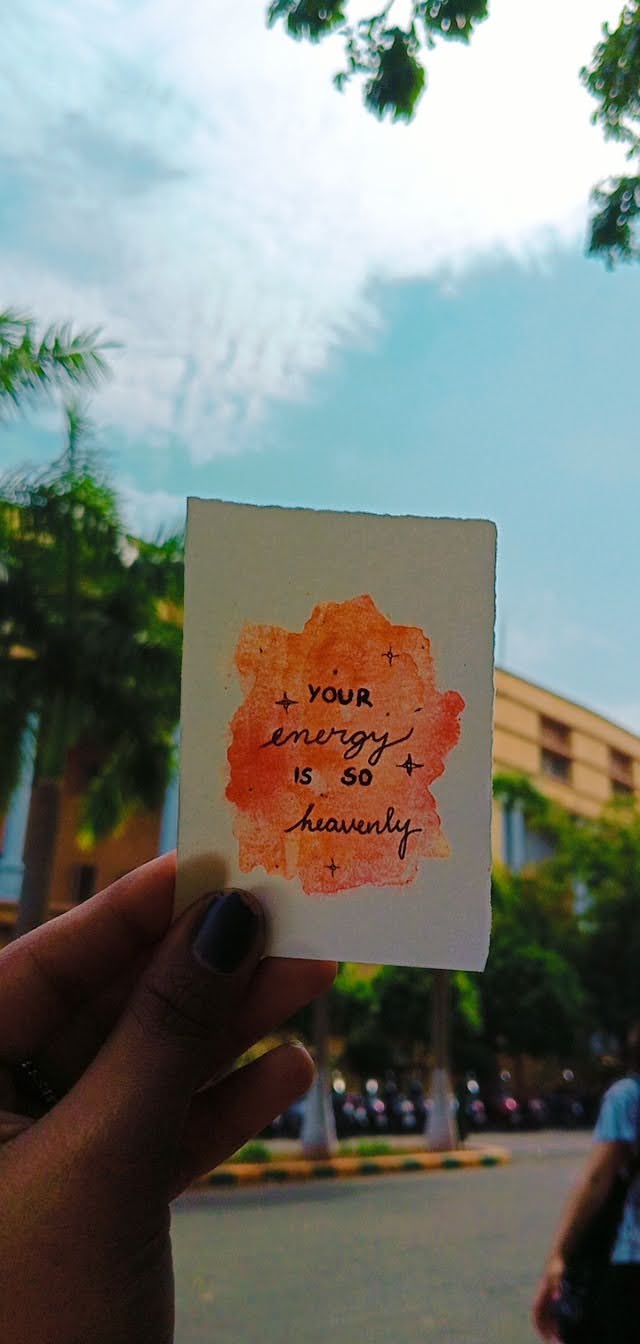 YOUR
energy
IS SO
heavenly